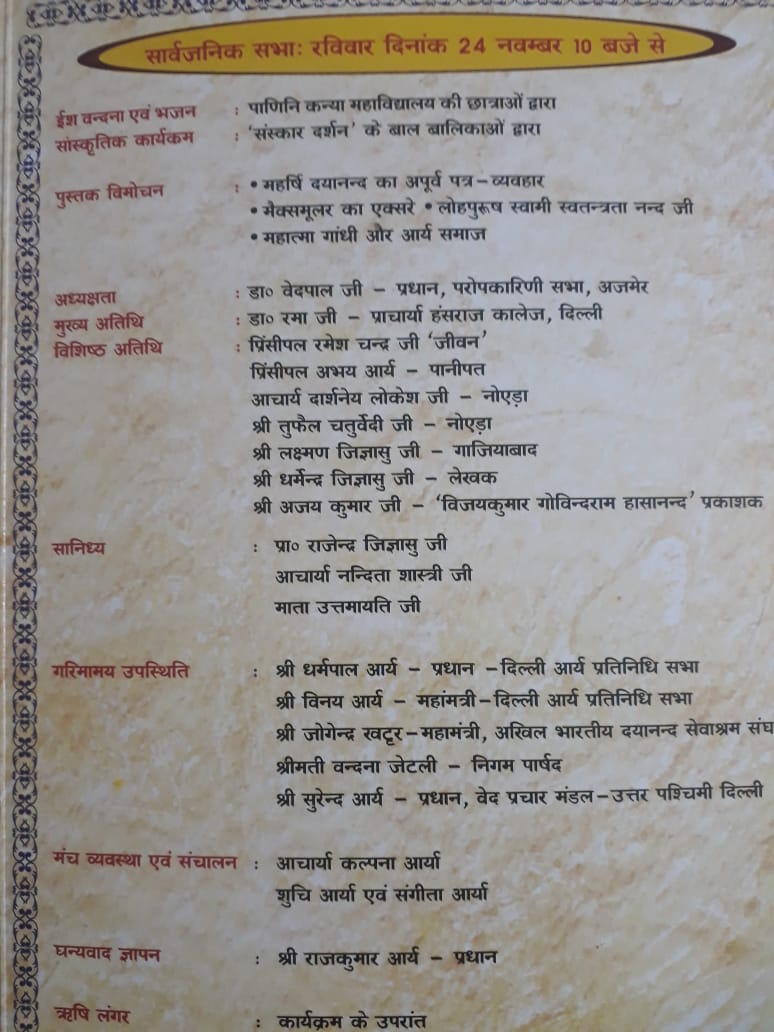 सार्वजनिक सभाः रविवार दिनांक 24 नवम्बर 10 बजे से
ईश वन्दना एवं भजन : पाणिनि कन्या महाविद्यालय की छात्राओं द्वारा
सांस्कृतिक कार्यकम : ‘संस्कार दर्शन’ के बाल बालिकाओं द्वारा
पुस्तक विमोचन : • महर्षि दयानन्द का अपूर्व पत्र–व्यवहार
• मैक्समूलर का एक्सरे • लोहपुरूष स्वामी स्वतन्त्रता नन्द जी
• महात्मा गांधी और आर्य समाज
अध्यक्षता : डा० वेदपाल जी – प्रधान, परोपकारिणी सभा, अजमेर
मुख्य अतिथि : डा० रमा जी – प्राचार्या हंसराज कालेज, दिल्ली
विशिष्ठ अतिथि : प्रिंसीपल रमेश चन्द्र जी ‘जीवन’
प्रिंसीपल अभय आर्य – पानीपत
आचार्य दार्शनेय लोकेश जी – नोएड़ा
श्री तुफैल चतुर्वेदी जी – नोएड़ा
श्री लक्ष्मण जिज्ञासु जी – गाजियाबाद
श्री धर्मेन्द्र जिज्ञासु जी – लेखक
श्री अजय कुमार जी – ‘विजयकुमार गोविन्दराम हासानन्द’ प्रकाशक
सानिध्य : प्रा० राजेन्द्र जिज्ञासु जी
आचार्या नन्दिता शास्त्री जी
माता उत्तमायति जी
गरिमामय उपस्थिति : श्री धर्मपाल आर्य – प्रधान –दिल्ली आर्य प्रतिनिधि सभा
श्री विनय आर्य – महांमत्री–दिल्ली आर्य प्रतिनिधि सभा
श्री जोगेन्द्र खट्टर–महामंत्री, अखिल भारतीय दयानन्द सेवाश्रम संघ
श्रीमती वन्दना जेटली – निगम पार्षद
श्री सुरेन्द आर्य – प्रधान, वेद प्रचार मंडल–उत्तर पश्चिमी दिल्ली
मंच व्यवस्था एवं संचालन : आचार्या कल्पना आर्या
शुचि आर्या एवं संगीता आर्या
घन्यवाद ज्ञापन : श्री राजकुमार आर्य – प्रधान
ऋषि लंगर : कार्यक्रम के उपरांत